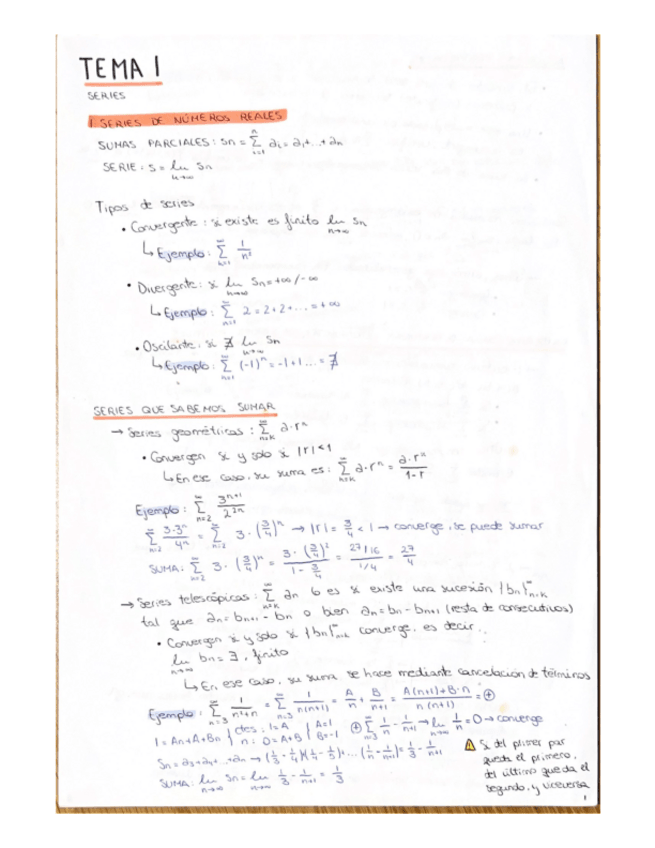 TEMA 1
SERIES
1 SERIES DE NÚMEROS REALES
SUMAS PARCIALES: Sn = ∑_{i=1}^{n} ai = a1 + ... + an
SERIE: S = lim_{n→∞} Sn
Tipos de series
• Convergente: si existe es finito lim_{n→∞} Sn
↳ Ejemplo: ∑_{n=1}^{∞} 1/n²
• Divergente: si lim_{n→∞} Sn = +∞/-∞
↳ Ejemplo: ∑_{n=1}^{∞} 2 = 2+2+... = +∞
• Oscilante: si ∄ lim_{n→∞} Sn
↳ Ejemplo: ∑_{n=1}^{∞} (-1)ⁿ = -1+1... = ∄
SERIES QUE SABEMOS SUMAR
→ Series geométricas: ∑_{n=k}^{∞} a·rⁿ
• Convergen si y solo si |r|<1
↳ En ese caso, su suma es: ∑_{n=k}^{∞} a·rⁿ = a·r^k/(1-r)
Ejemplo: ∑_{n=2}^{∞} 3^{n+1}/2^{2n}
∑_{n=2}^{∞} 3·3ⁿ/4ⁿ = ∑_{n=2}^{∞} 3·(3/4)ⁿ → |r| = 3/4 < 1 → converge, se puede sumar
SUMA: ∑_{n=2}^{∞} 3·(3/4)ⁿ = 3·(3/4)²/(1-3/4) = (27/16)/(1/4) = 27/4
→ Series telescópicas: ∑_{n=k}^{∞} an lo es si existe una sucesión {bn}_{n=k}^{∞}
tal que an = bn+1 - bn o bien an = bn - bn+1 (resta de consecutivos)
• Convergen si y solo si {bn}_{n=k}^{∞} converge, es decir,
lim_{n→∞} bn = ∃, finito
↳ En ese caso, su suma se hace mediante cancelación de términos
Ejemplo: ∑_{n=3}^{∞} 1/(n²+n) = ∑_{n=3}^{∞} 1/(n(n+1)) = A/n + B/(n+1) = (A(n+1)+B·n)/(n(n+1)) = ⊕
1 = An+A+Bn } ctes: 1=A n: 0=A+B } A=1 B=-1 ⊕ ∑_{n=3}^{∞} 1/n - 1/(n+1) → lim_{n→∞} 1/n = 0 → converge
Sn = a3+a4+...+an → (1/3 - 1/4)+(1/4 - 1/5)+...(1/n - 1/(n+1)) = 1/3 - 1/(n+1)
SUMA: lim_{n→∞} Sn = lim_{n→∞} 1/3 - 1/(n+1) = 1/3
⚠ Si del primer par
queda el primero,
del último queda el
segundo, y viceversa
1